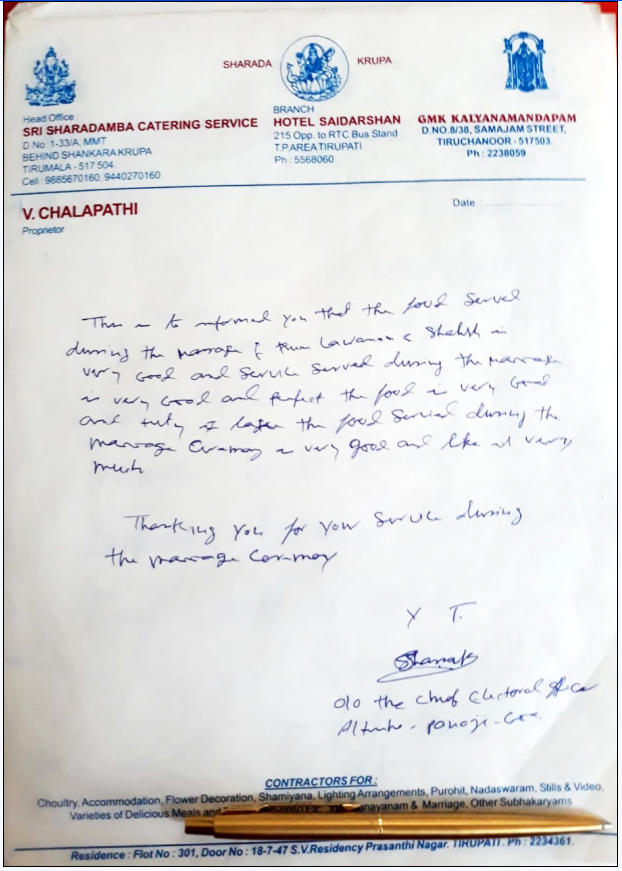 SHARADA KRUPA
Head Office
SRI SHARADAMBA CATERING SERVICE
D.No. 1-33/A, MMT
BEHIND SHANKARA KRUPA
TIRUMALA - 517 504.
Cell : 9885670160, 9440270160
BRANCH
HOTEL SAIDARSHAN
215 Opp. to RTC Bus Stand
T.P.AREA TIRUPATI
Ph : 5568060
GMK KALYANAMANDAPAM
D.NO.8/38, SAMAJAM STREET,
TIRUCHANOOR - 517503.
Ph : 2238059
V. CHALAPATHI
Proprietor
Date :
This is to informed you that the food Served
during the marrage of Lavanan & in
very Good and Service Served during the marrage
is very Good and Perfect the food is very Good
and the food Served during the
marrage Ceremoy is very good and like it very
much
Thanking you for your Service during
the marrage Ceremoy
Y T.
O/o the Chief Electoral Office
Altinho - Panaji - Goa
CONTRACTORS FOR :
Choultry, Accommodation, Flower Decoration, Shamiyana, Lighting Arrangements, Purohit, Nadaswaram, Stills & Video,
Varieties of Delicious Meals and & Marriage, Other Subhakaryams
Residence : Flot No : 301, Door No : 18-7-47 S.V.Residency Prasanthi Nagar. TIRUPATI. Ph : 2234361.